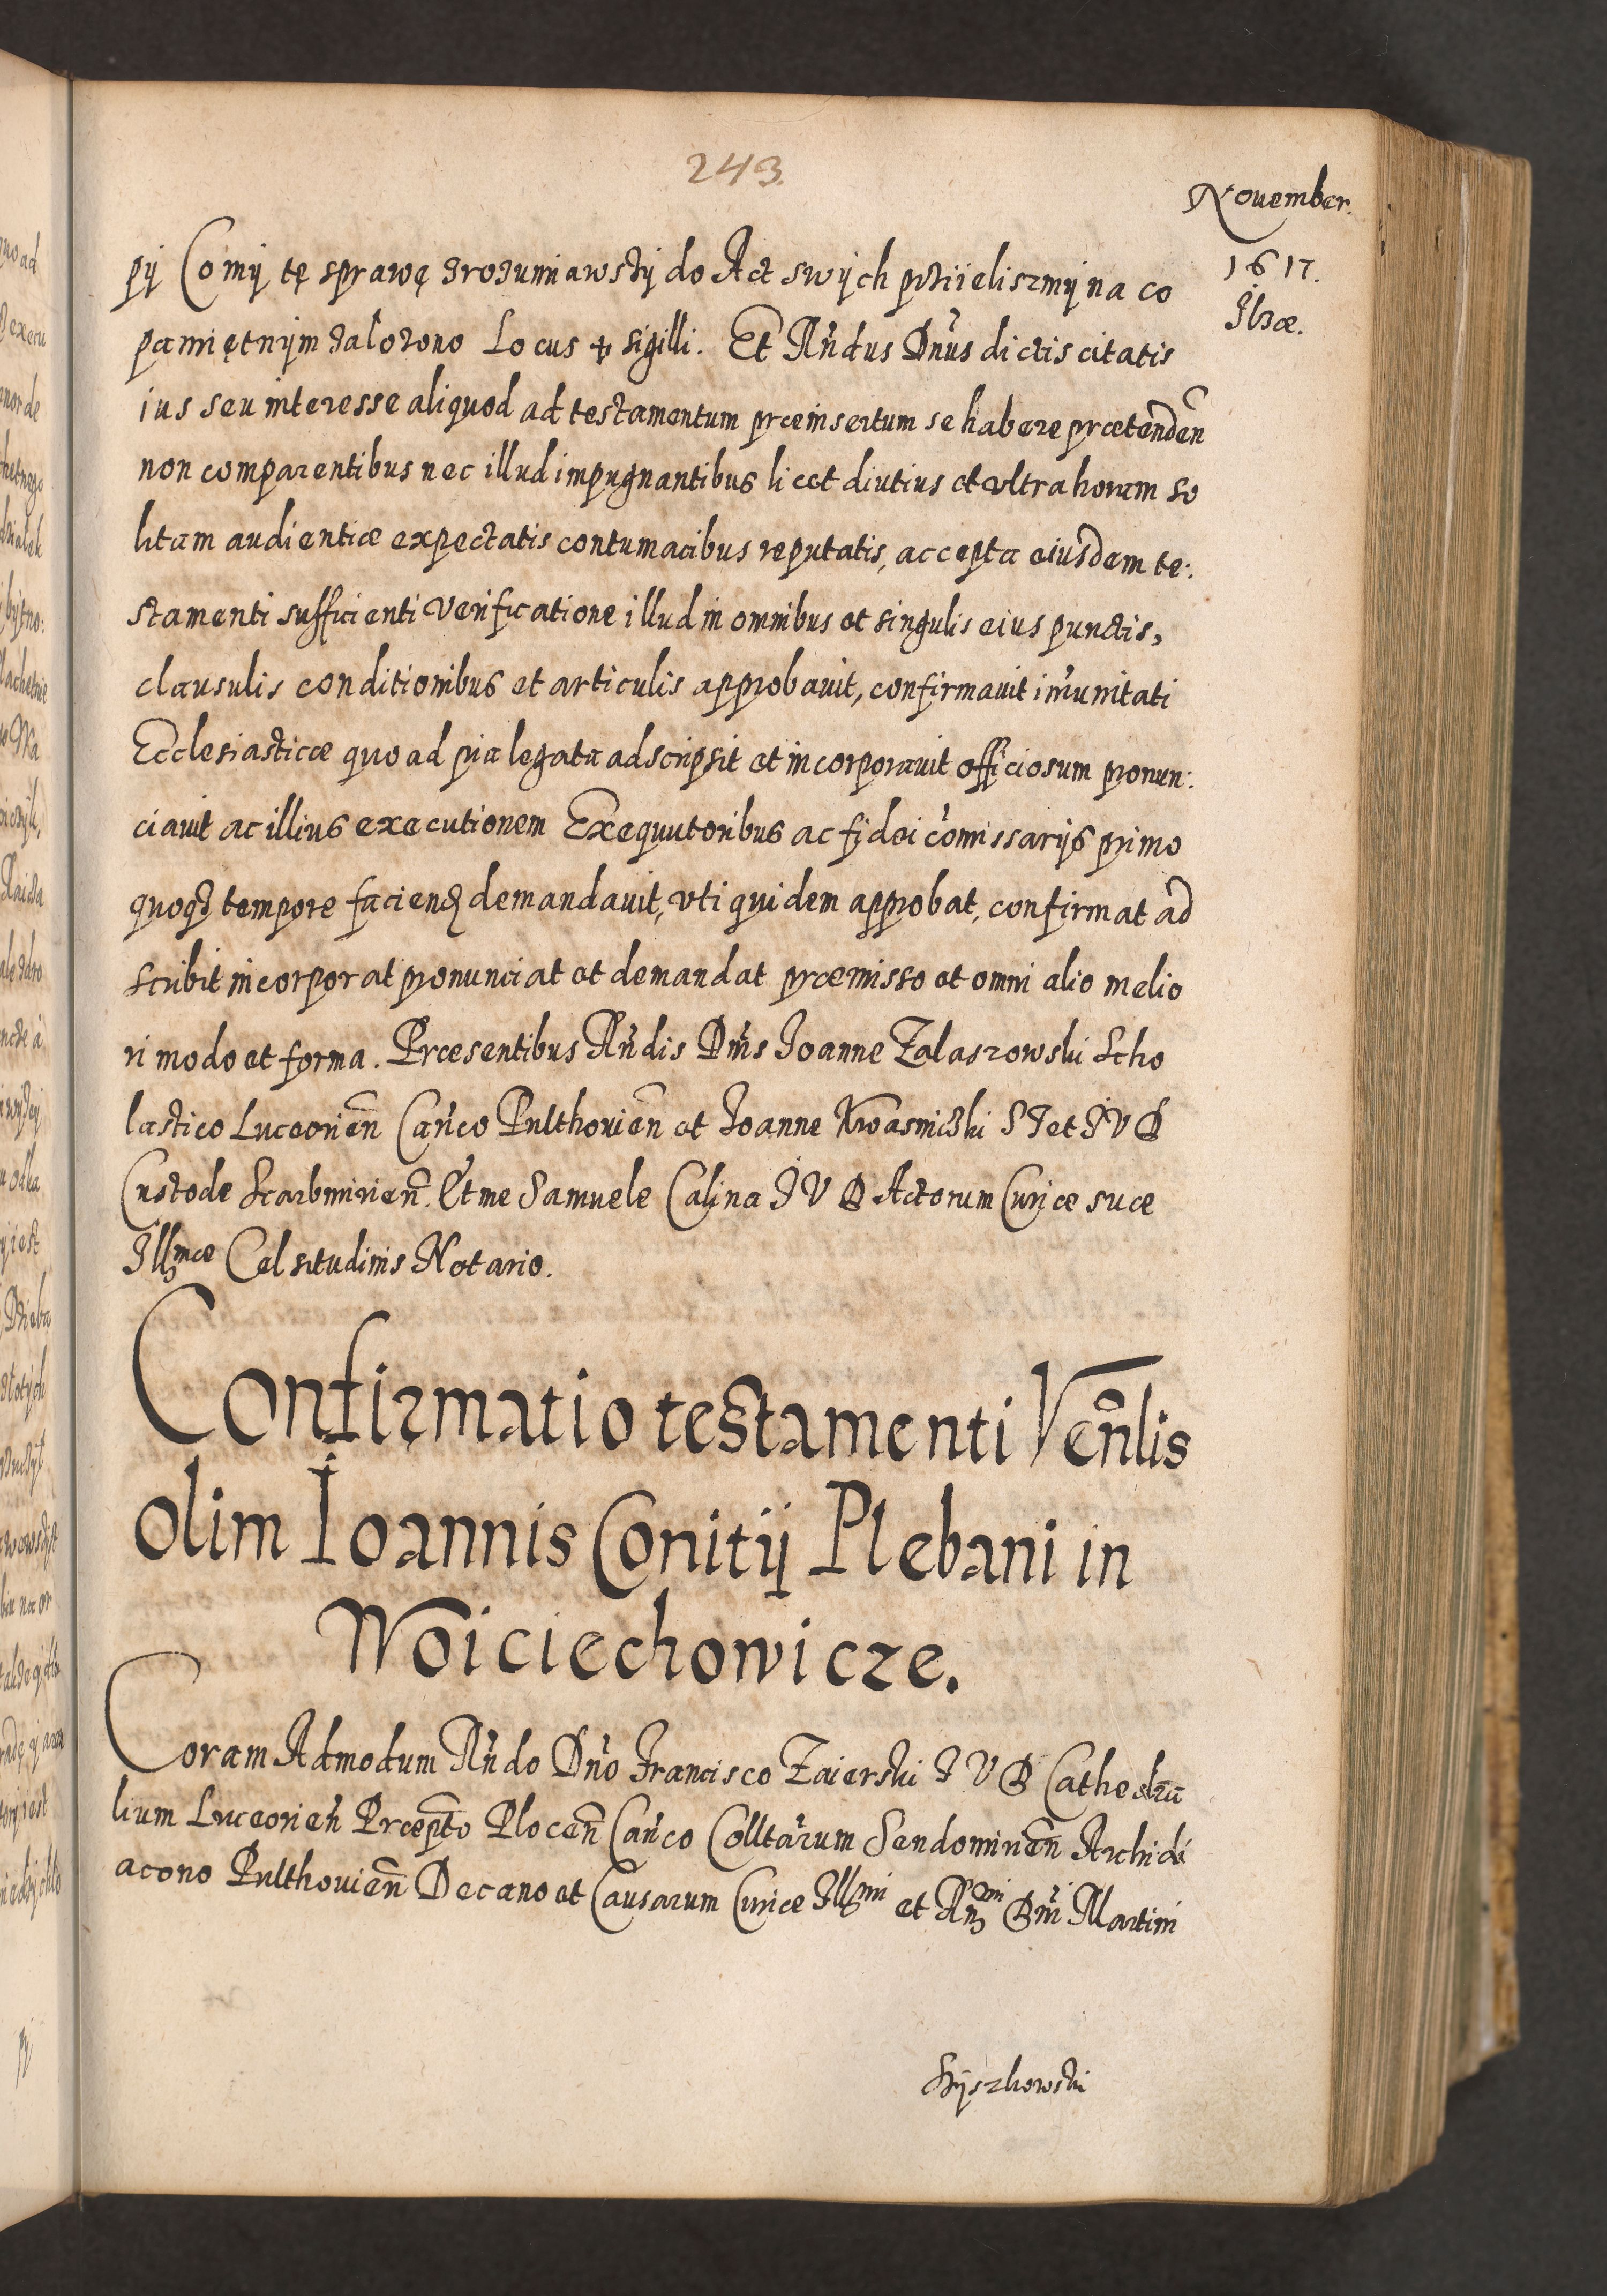 243.
November.
1617.
Ilzæ.
pÿ Co mÿ tę sprawę zrozumiawszÿ do Act swÿch przÿieliszmÿ na co
pamiętnÿm założono Locus ✝ sigilli. Et R̃ndus Dñus dictis citatis
ius seu interesse aliquod ad testamentum præinsertum se habere prætenden̄
non comparentibus nec illud impugnantibus licet diutius et vltra horam so
litam audientiæ expectatis contumacibus reputatis, accepta eiusdem te:
stamenti sufficienti Verificatione illud in omnibus et singulis eius punctis,
clausulis conditionibus et articulis approbauit, confirmauit im̃unitati
Ecclesiasticæ quo ad pia legata adscripsit et incorporauit officiosum pronun:
ciauit ac illius executionem Exequutoribus ac fidei com̃issarijs primo
quoqз tempore faciend demandauit, vti quidem approbat, confirmat ad
scribit incorporat pronunciat et demandat præmisso et omni alio melio
ri modo et forma. Præsentibus R̃ndis Dñis Joanne Zalaszowski Scho
lastico Luceorien̄ Can̄co Pulthouien̄ et Joanne Kwasnicki S T et J V D
Custode Scarbimirien̄. Et me Samuele Calina J V D Actorum Curiæ suæ
Illmæ Celsitudinis Notario.
Confirmatio testamenti Ven̄lis
olim Ioannis Conitij Plebani in
Woiciechowicze.
Coram Admodum R̃ndo Dño Francisco Zaierski J V D Cathedra
lium Luceorien̄ Præpto Plocen̄ Can̄co Colltarum Sendomirien̄ Archidi
acono Pulthouien̄ Decano et Causarum Curiæ Illmi et Rmi Dñi Martini
Szÿszkowski